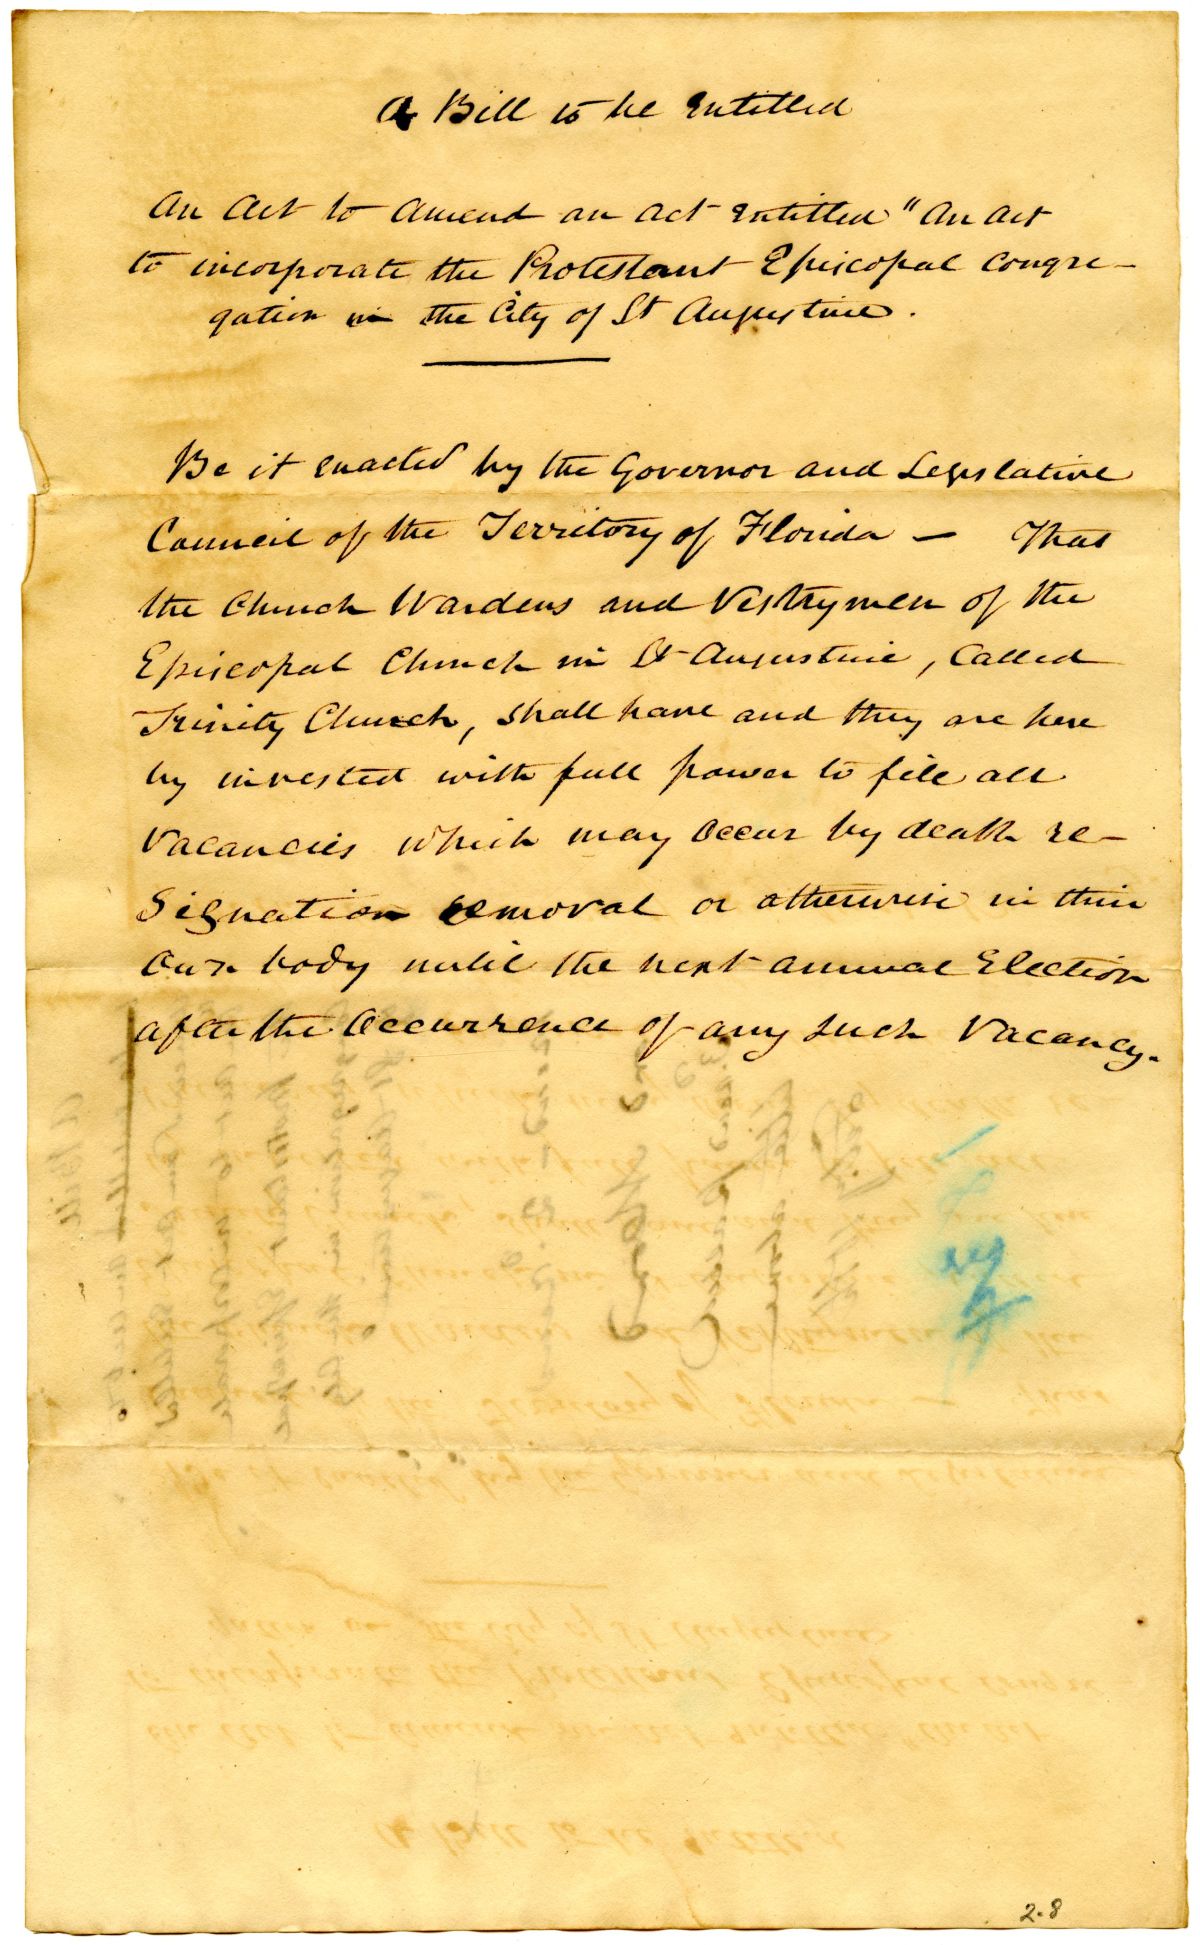 A Bill to be Entitled
An Act to Amend an act entitled "An act
to incorporate the Protestant Episcopal congre-
gation in the City of St Augustine.
Be it enacted by the Governor and Legislative
Council of the Territory of Florida — That
the Church Wardens and Vestrymen of the
Episcopal Church in St Augustine, Called
Trinity Church, shall have and they are here
by invested with full power to fill all
Vacancies which may occur by death re-
signation removal or otherwise in their
own body until the next annual Election
after the Occurrence of any such Vacancy.
2.8